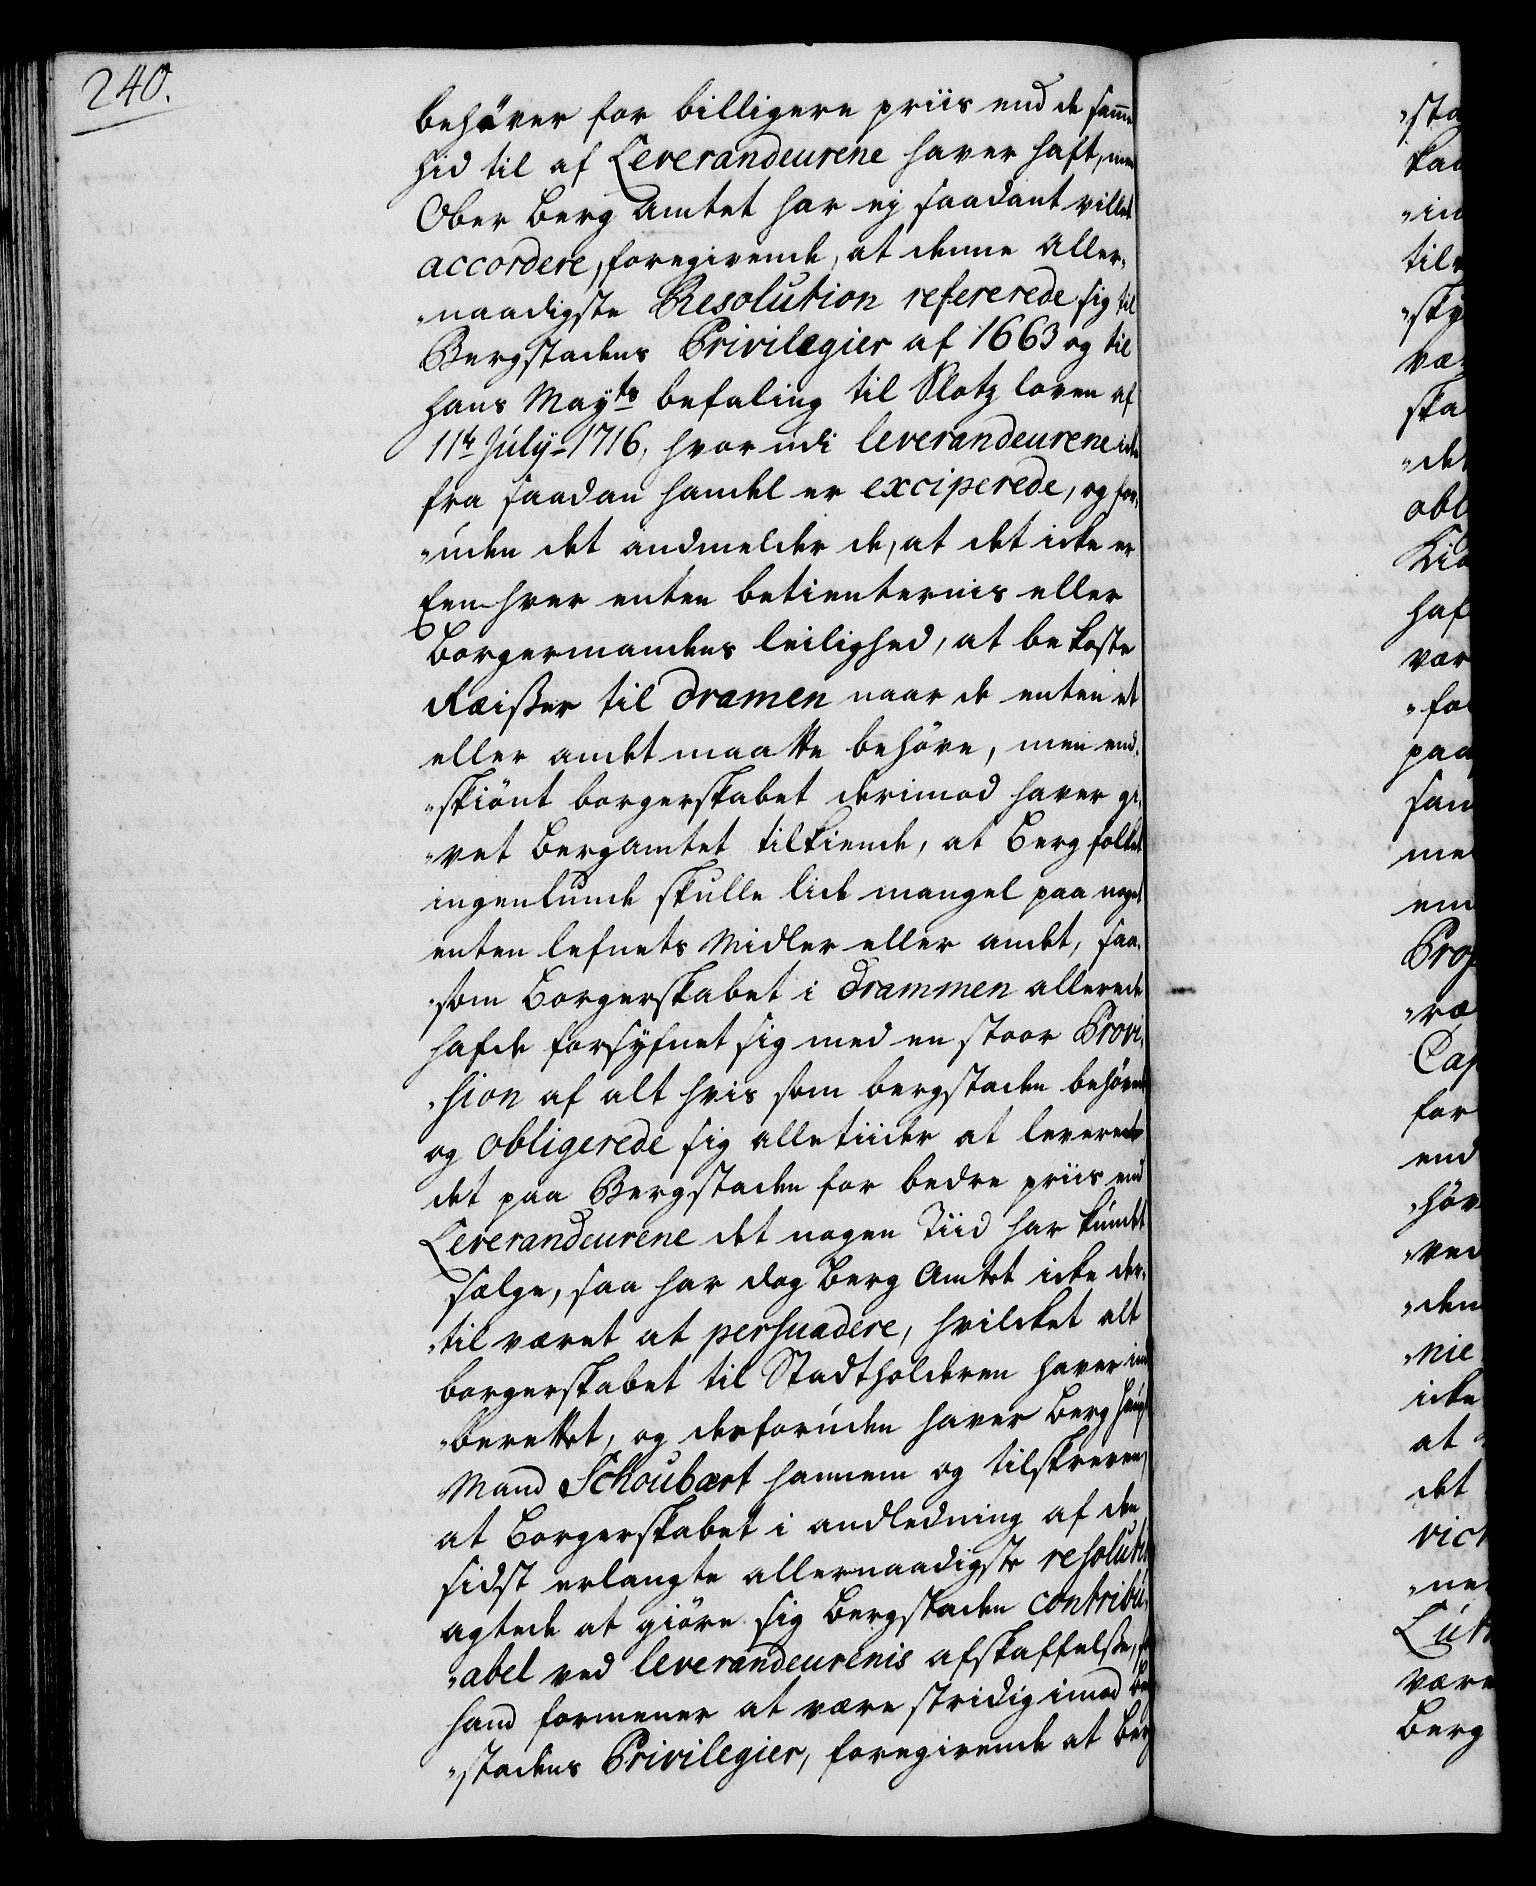 240.
behöver for billigere priis end de samme
hid til af Leverandeurene haver haft, men
Ober Berg Amtet har ej saadant villet
accordere, foregivende, at denne Aller„
„naadigste Resolution refererede sig til
Bergstadens Privilegier af 1663 og til
hans Mayts befaling til Slotz loven af
11te July 1716, hvor udi leverandeurene icke
fra saadan handel er exciperede, og for„
„uden det andmelder de, at det icke er
Een hver enten betienternis eller
Borgermandens leilighed, at bekoste
Reisser til Dramen naar de enten et
eller andet maatte behöve, men end„
„skiönt borgerskabet derimod haver gi„
„vet Bergamtet tilkiende, at Bergfolket
ingenlunde skulle lide mangel paa noget
enten lefnets Midler eller andet, saa„
„som Borgerskabet i Drammen allerede
hafde forsÿfnet sig med en stoor Provi„
„sion af alt hvis som bergstaden behöver
og obligerede sig alletiider at leverede
det paa Bergstaden for bedre priis end
Leverandeurene det nogen Tiid har kundet
sælge, saa har dog Berg Amtet icke der„
„til været at persuadere, hvilcket alt
borgerskabet til Stadtholderen haver ind
„berettet, og desforuden haver Berg Haupt
Mand Schoubært hannem og tilskreven,
at Borgerskabet i andledning af den
sidst erlangte allernaadigste resolution
agtede at giöre sig Bergstaden contribu„
„abel ved leverandeurenis afskaffelsse,
hand formener at være stridig imod Berg
„stadens Privilegier, foregivende at Berg